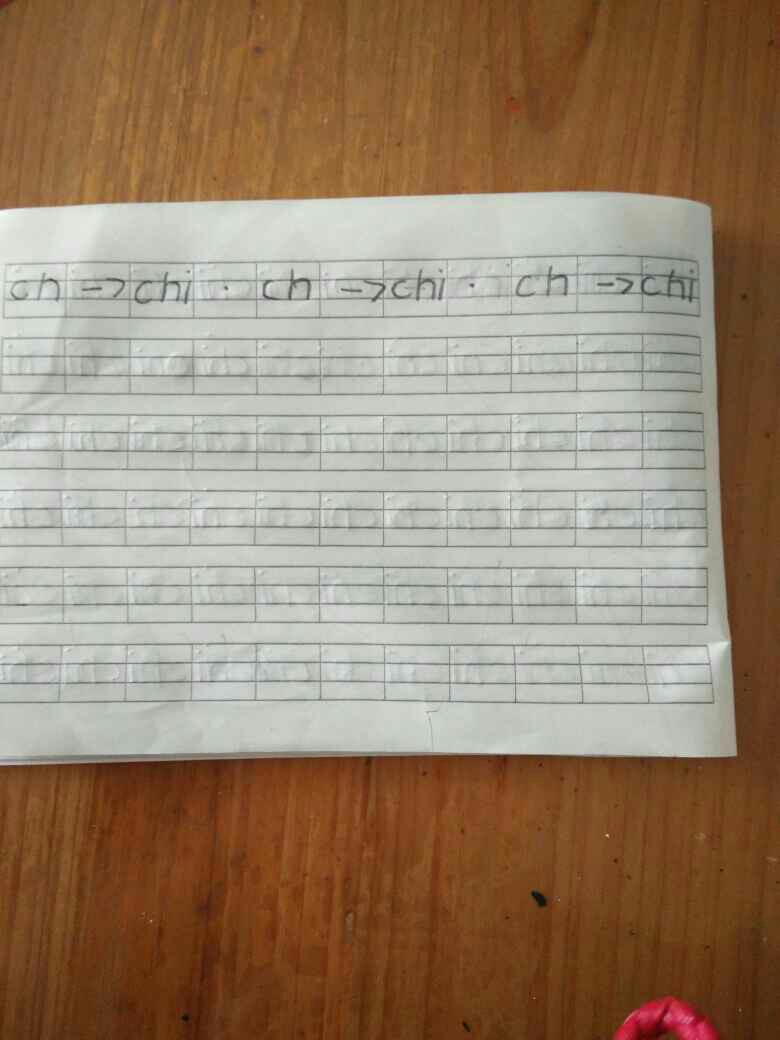 ch → chi · ch → chi · ch → chi